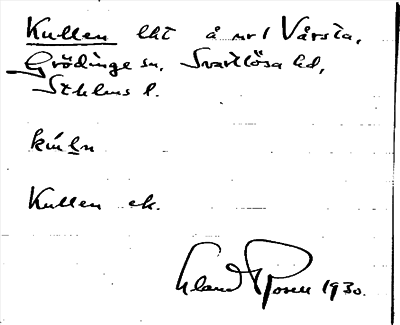 Kullen lht å nr 1 Vårsta,
Grödinge sn, Svartlösa hd,
Sthlms l.
Kullen ek.
Rosen 1930.